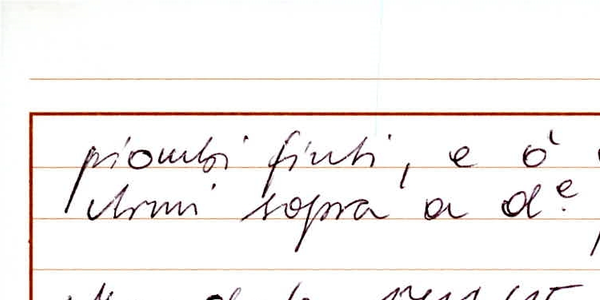 piombi finti, e ò
Armi sopra a d.e